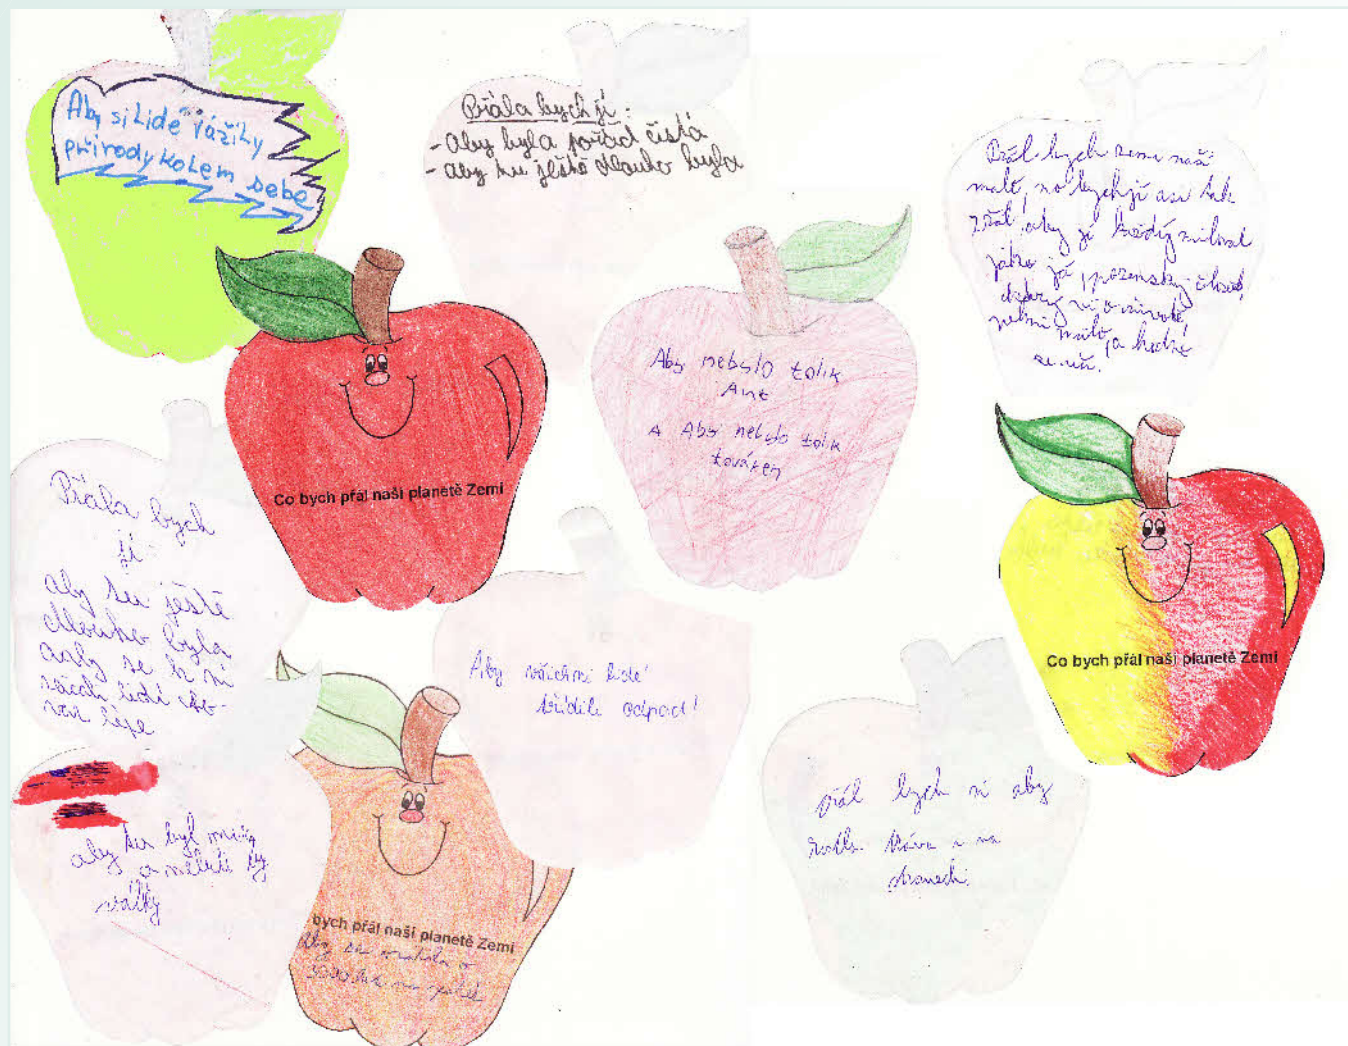 Aby si Lidé vážiLy
přírody koLem sebe
Přála bych jí:
- Aby byla pořád čistá
- aby tu ještě dlouho byla
Přál bych zemi naší
jako já, pozemský
Aby nebylo tolik
Aut
A Aby nebylo tolik
továren
Co bych přál naší planetě Zemi
Přála bych
jí:
aby tu ještě
dlouho byla
aby se k ní
lidi cho-
val lépe
Aby všichni lidé
třídili odpad!
Co bych přál naší planetě Zemi
aby tu byl mír
a nebyli by
války
bych přál naší planetě Zemi
Aby se vrátila o
3000 let
přál bych si aby
rostla tráva i na